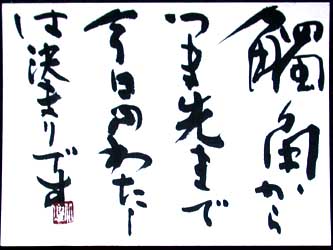 觸角から
つま先まで
今日のわたし
は決まりです